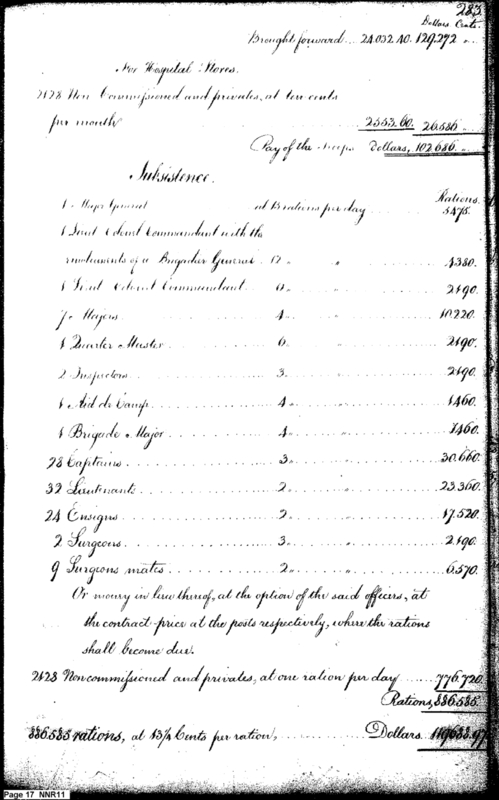 283.
Dollars. Cents.
Brought forward... 24.032.40. 129.272 "
For Hospital Stores.
2128 Non Commissioned and privates, at ten cents
per month 2553.60. 26.586 "
Pay of the Troops Dollars, 102.686. "
Subsistence.
Rations.
1 Major General at 15 rations per day 5475.
1 Lieut Colonel Commandant with the
emoluments of a Brigadier General 12 " " 4380.
1 Lieut Colonel Commandant 6 " " 2190.
7 Majors 4 " " 10.220.
1 Quarter Master 6 " " 2190.
2 Inspectors 3 " " 2190.
1 Aid de Camp 4 " " 1460.
1 Brigade Major 4 " " 1460.
28 Captains 3 " " 30.660.
32 Lieutenants 2 " " 23.360.
24 Ensigns 2 " " 17.520.
2 Surgeons 3 " " 2190.
9 Surgeons mates 2 " " 6.570.
Or money in lieu thereof, at the option of the said officers, at
the contract price at the posts respectively, where the rations
shall become due.
2128 Noncommissioned and privates, at one ration per day 776.720.
Rations, 886.585.
886.585 rations, at 13½ Cents per ration, Dollars
Page 17 NNR11